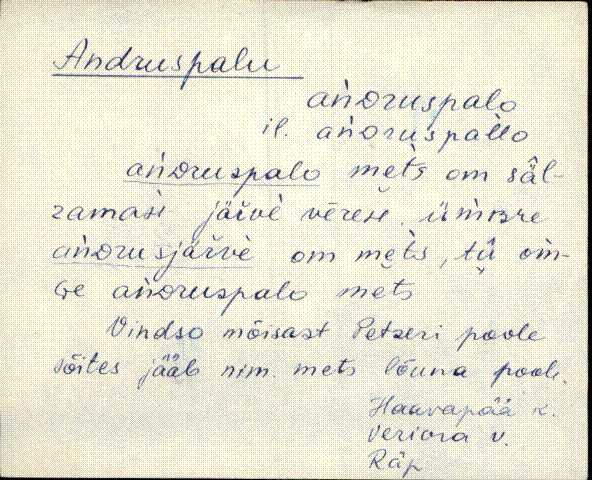 Andruspalu
ańdruspalo
il. ańdruspallo
ańdruspalo mets om säl-
zamaʜ järve vēreʜ. üḿʙre
ańdrusjärve om mets, tū oḿ-
ɢe ańdruspalo mets
Vindso mõisast Petseri poole
sõites jääb nim. mets lõuna poole.
Haavapää k.
Veriora v.
Räp